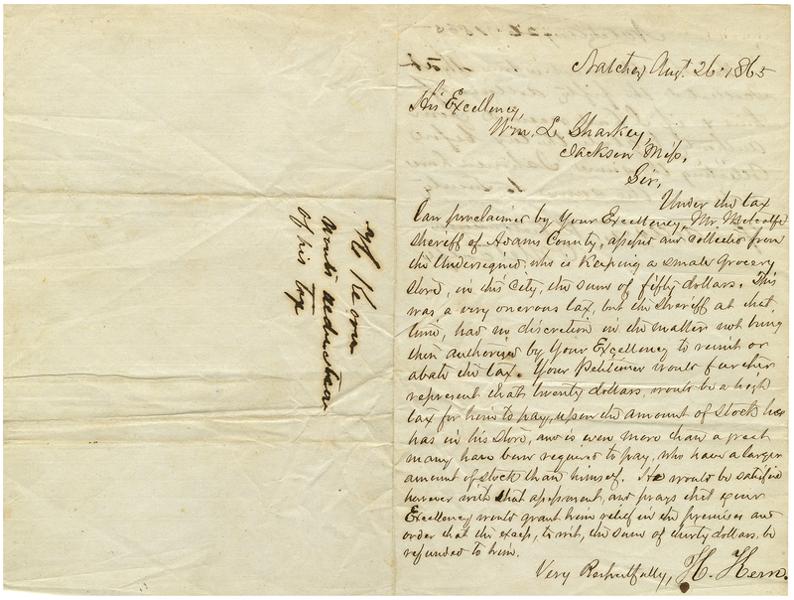 Natchez Aug't. 26. 1865
His Excellency,
Wm. L. Sharkey,
Jackson Miss.
Sir,
Under the tax
Law proclaimed by Your Excellency, Mr. Metcalfe
Sheriff of Adams County, assessed and collected from
the Undersigned, who is keeping a small Grocery
Store, in this City, the sum of fifty dollars. This
was a very onerous tax, but the Sheriff at that
time, had no discretion in the matter not being
then authorised by Your Excellency to remit or
abate the tax. Your Petitioner would further
represent that twenty dollars, would be a high
tax for him to pay, upon the amount of Stock he
has in his Store, and is even more than a great
many have been required to pay, who have a larger
amount of stock than himself. He would be satisfied
however with that assessment, and prays that your
Excellency would grant him relief in the premises and
order that the excess, to wit, the sum of thirty dollars, be
refunded to him.
Very Respectfully, H. Hern.
wants reduction
of his tax